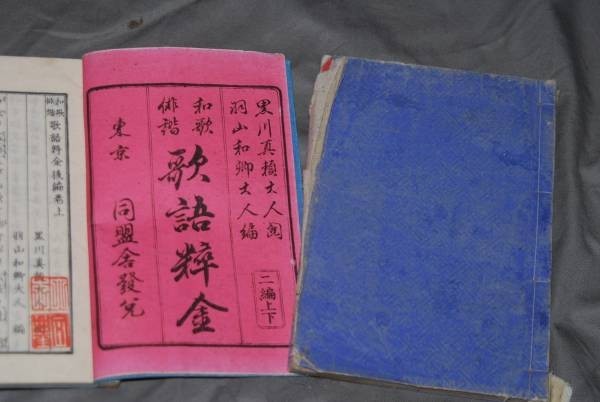 黒川真頼大人閲
羽山和卿大人編
和歌
俳諧
歌語粋金
二編上下
東京
同盟舎發兌
和歌
俳諧
歌語粋金後編巻上
黒川真頼
羽山和卿大人 編